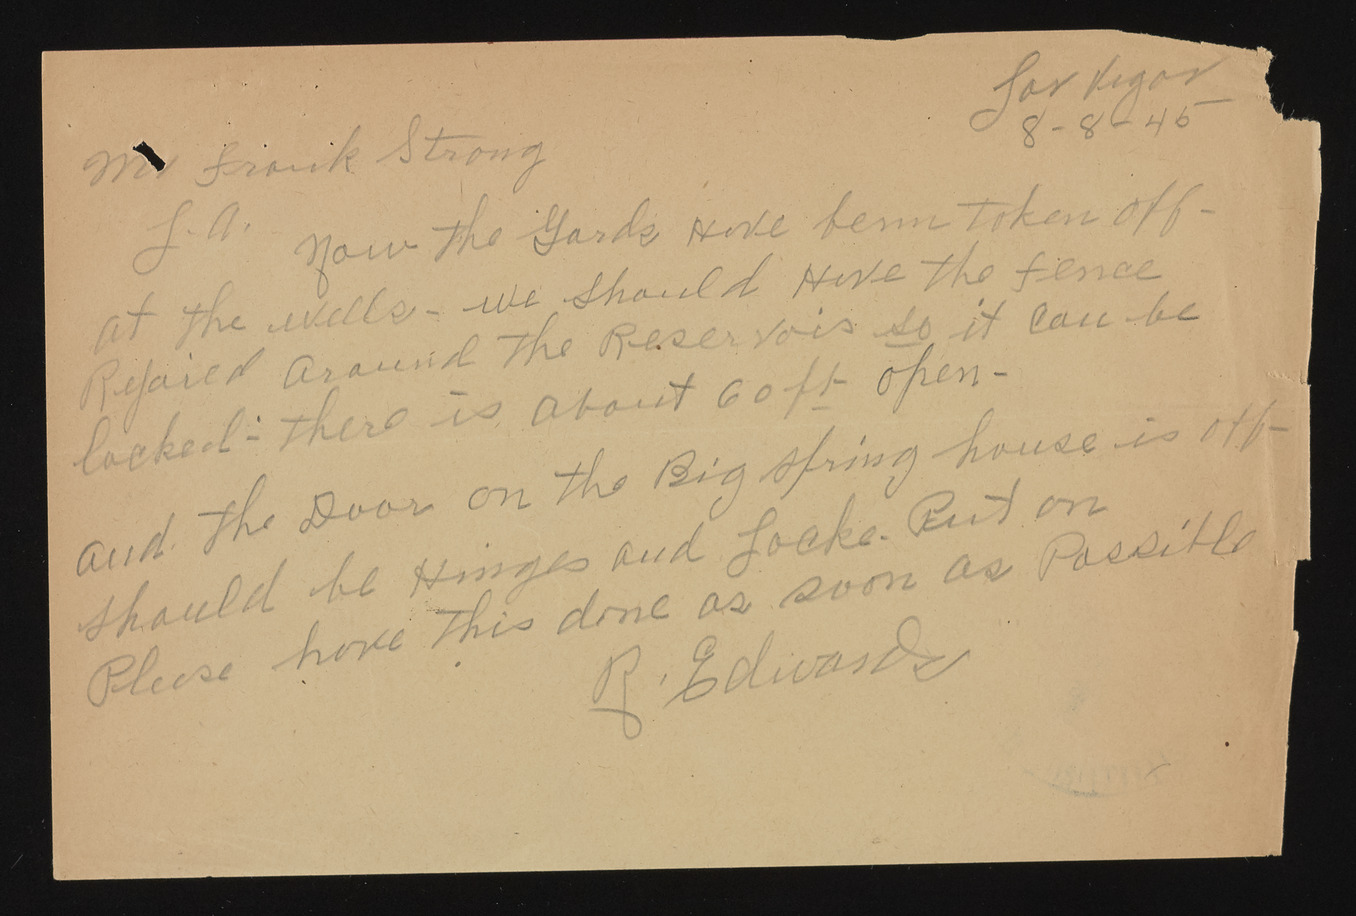 Las Vegas
8-8-45
Mr Frank Strong
L.A.
Now the Gards Have benn taken off-
at the wells- we should Have the fence
Repaired around the Reservois so it can be
locked- there is about 60 ft open-
and the Door on the Big spring house is off-
should be Hinges and Locke. Put on
Please have this done as soon as Possible
R. Edwards